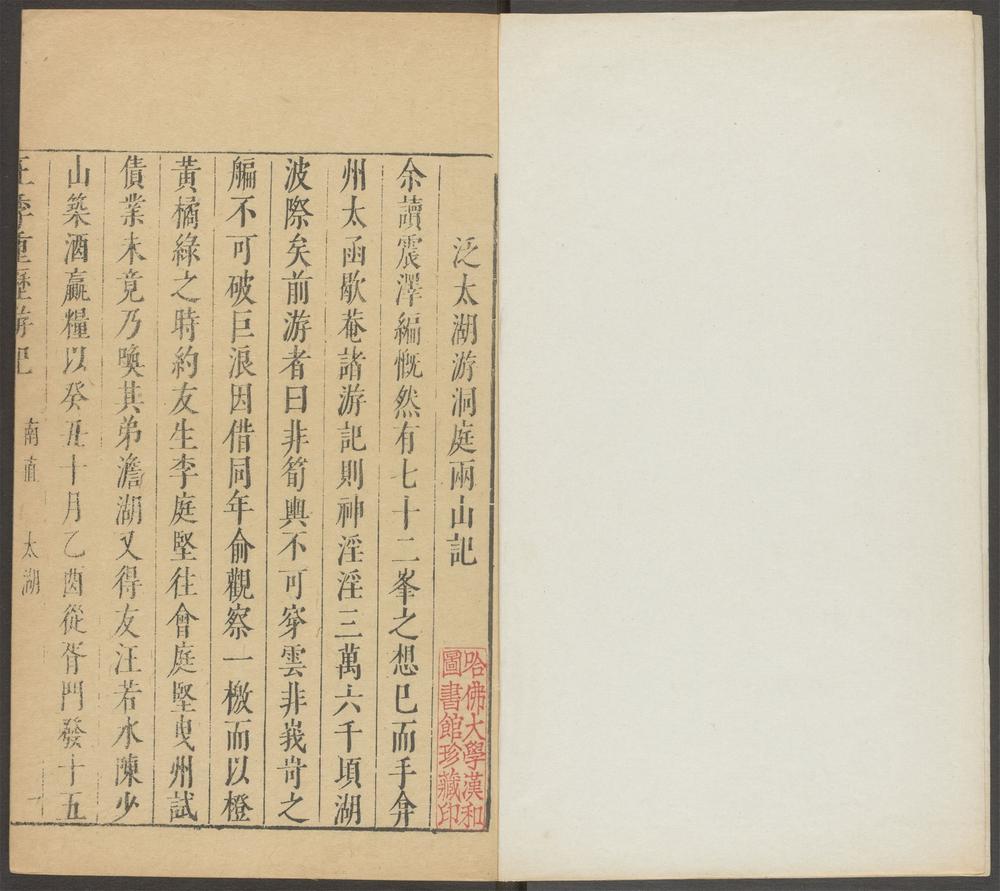 泛太湖游洞庭兩山記
余讀震澤編慨然有七十二峯之想巳而手弇
州太函歇菴諸游記則神淫淫三萬六千頃湖
波際矣前游者曰非筍輿不可穿雲非峩岢之
艑不可破巨浪因借同年俞觀察一檄而以橙
黃橘綠之時約友生李庭堅徃會庭堅曳州試
債業未竟乃喚其弟澹湖又得友汪若水陳少
山築酒贏糧以癸丑十月乙酉從胥門發十五
王季重歷游記 南直 太湖 一
哈佛大學漢和
圖書館珍藏印